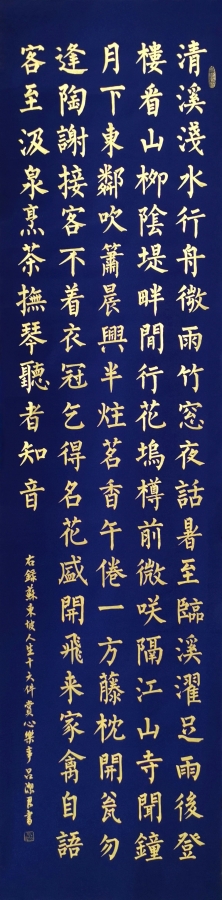 清溪淺水行舟微雨竹窓夜話暑至臨溪濯足雨後登
樓看山栁陰堤畔閒行花塢樽前微咲隔江山寺聞鐘
月下東鄰吹簫晨興半炷茗香午倦一方藤枕開瓮勿
逢陶謝接客不着衣冠乞得名花盛開飛来家禽自語
客至汲泉烹茶撫琴聽者知音
右録蘇東坡人生十六件賞心樂事